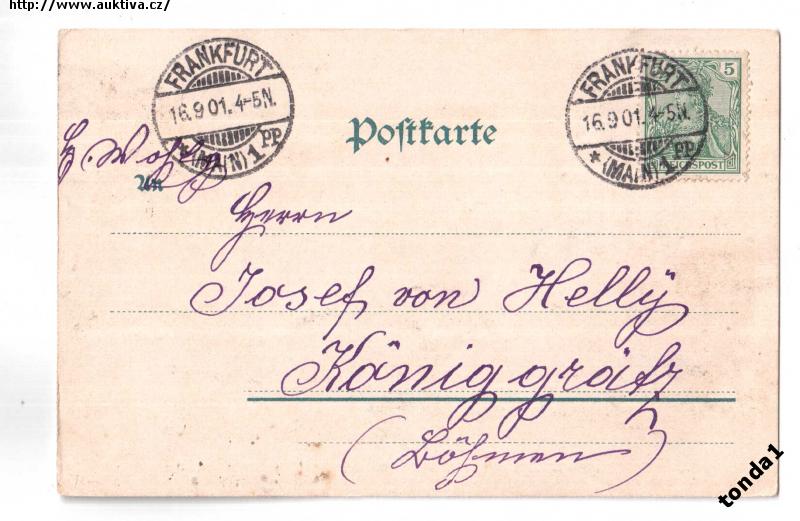 http://www.auktiva.cz/
FRANKFURT
16.9 01. 4-5N.
* (MAIN) 1 PP
FRANKFURT
16.9 01. 4-5N.
* (MAIN) 1 PP
5
REICHSPOST
Postkarte
An
Herrn
Josef von Hellÿ
Königgrätz
(Böhmen)
tonda1